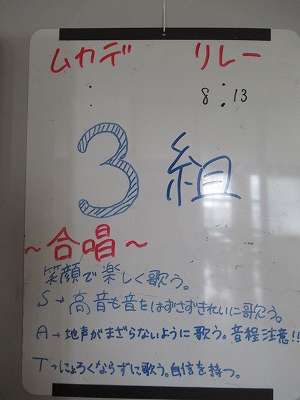 ムカデ リレー
: 8:13
3組
~合唱~
笑顔で楽しく歌う。
S→高音も音をはずさずきれいに歌う。
A→地声がまざらないように歌う。音程注意!!
T→にょろくならずに歌う。自信を持つ。